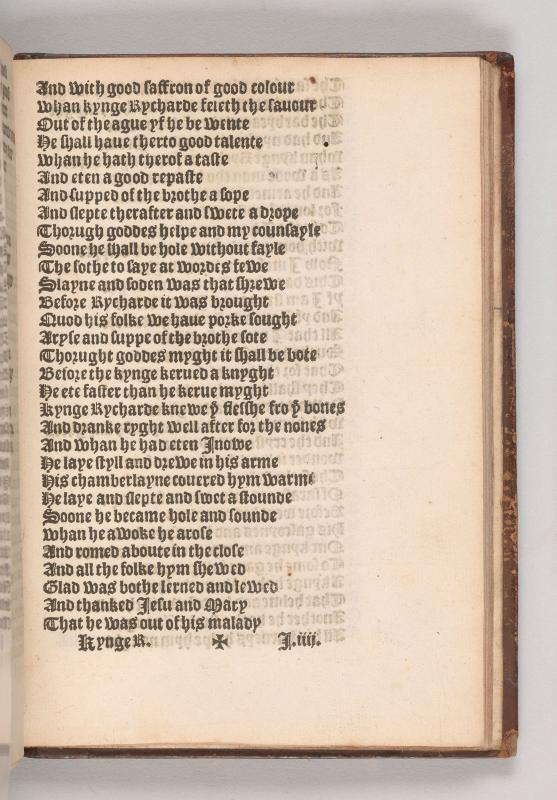 And with good saffron of good colour
whan kynge Rycharde feleth the sauour
Out of the ague yf he be wente
He shall haue therto good talente
whan he hath therof a taste
And eten a good repaste
And supped of the brothe a sope
And slepte therafter and swete a drope
Thorugh goddes helpe and my counsayle
Soone he shall be hole without fayle
The sothe to saye at wordes fewe
Slayne and soden was that shrewe
Before Rycharde it was brought
Quod his folke we haue porke sought
Aryse and suppe of the brothe sote
Thorught goddes myght it shall be bote
Before the kynge kerued a knyght
He ete faster than he kerue myght
kynge Rycharde knewe yͤ flesshe fro yͤ bones
And dranke ryght well after for the nones
And whan he had eten Inowe
He laye styll and drewe in his arme
His chamberlayne couered hym warme
He laye and slepte and swet a stounde
Soone he became hole and sounde
whan he awoke he arose
And romed aboute in the close
And all the folke hym shewed
Glad was bothe lerned and lewed
And thanked Jesu and Mary
That he was out of his malady
Kynge R. ✠ J.iiii.